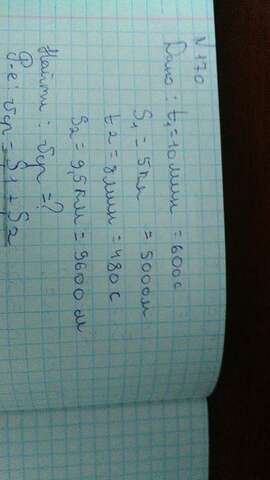 N 170
Дано: t₁ = 10 мин = 600 с
S₁ = 5 км = 5000 м
t 2 = 8 мин = 480 с
S₂ = 9,6 км = 9600 м
Найти: υср = ?
Р-е: υср = S₁ + S₂